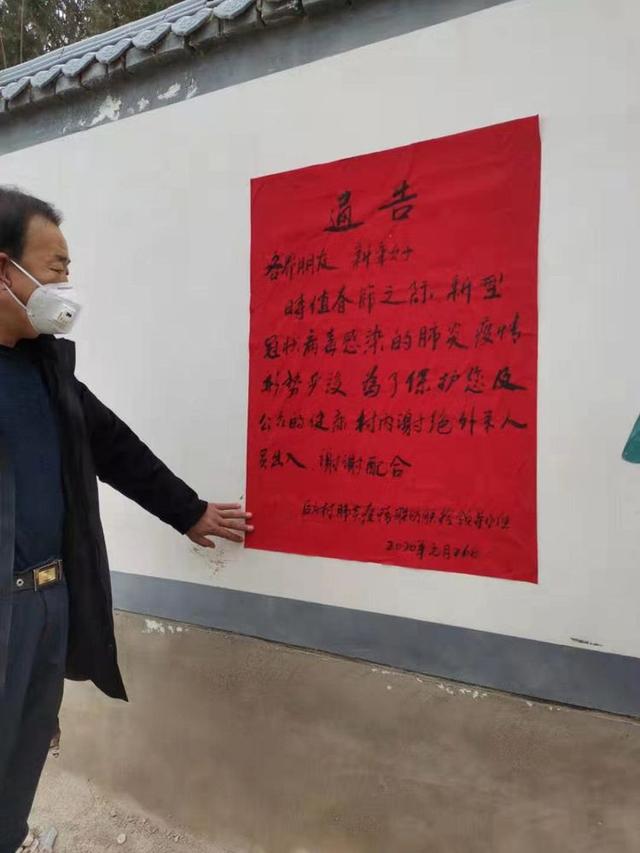 通告
各界朋友 新年好
時值春節之际 新型
冠状病毒感染的肺炎疫情
形势严峻 为了保护您及
公众的健康 村内谢绝外来人
员出入 谢谢配合
村肺炎疫情联防联控领导小组
2020年元月26日